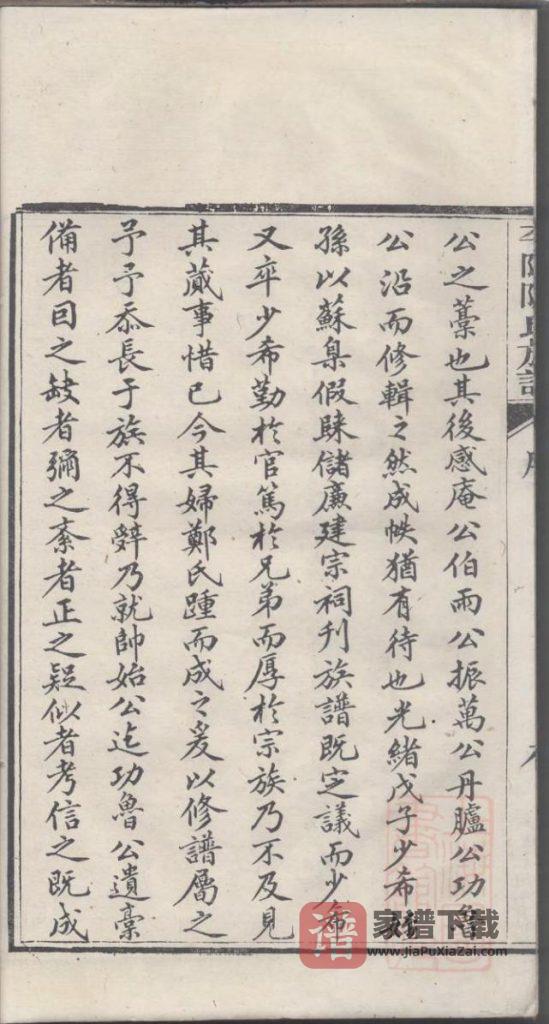 公之藁也其後感庵公伯雨公振萬公丹臚公功魯
公沿而修輯之然成帙猶有待也光緒戊子少希姪
孫以蘇臬假賕儲廉建宗祠刊族譜既定議而少希
又卒少希勤於官篤於兄弟而厚於宗族乃不及見
其蕆事惜已今其婦鄭氏踵而成之爰以修譜屬之
予予忝長于族不得辭乃就帥始公迄功魯公遺藁
備者因之缺者彌之紊者正之疑似者考信之既成
陳氏族譜
序
譜
家谱下载
www.JiaPuXiaZai.com